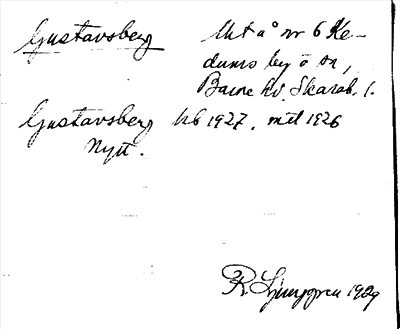 Gustavsberg Utt å nr 6 Ke-
dums by ö sn,
Barne hd. Skarab. l.
Gustavsberg kb 1927. mtl 1926
Nytt.
R. Ljunggren 1929